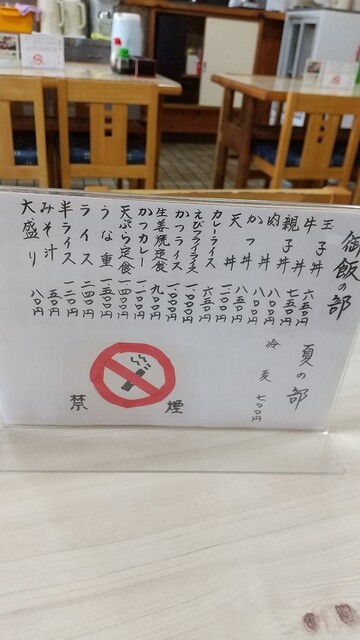 御飯の部
玉子丼 六五〇円
牛丼 七五〇円
親子丼 八〇〇円
肉丼 八〇〇円
かつ丼 八五〇円
天丼 一二〇〇円
カレーライス 六五〇円
えびフライライス 一〇〇〇円
かつライス 一〇〇〇円
生姜焼定食 九〇〇円
かつカレー 一〇〇〇円
天ぷら定食 一四〇〇円
うな重 一五〇〇円
ライス 二四〇円
半ライス 一二〇円
みそ汁 五〇円
大盛り 八〇円
夏の部
冷麦 七〇〇円
禁煙